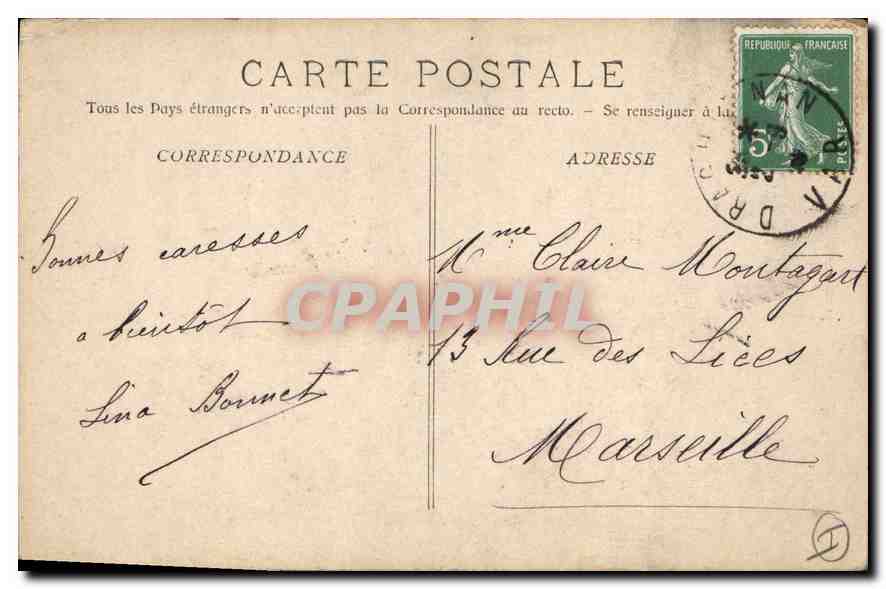 CARTE POSTALE
Tous les Pays étrangers n'acceptent pas la Correspondance au recto. - Se renseigner à la
CORRESPONDANCE
ADRESSE
REPUBLIQUE FRANÇAISE
5
POSTES
VAR
Bonnes caresses
a bientôt
Lina Bonnet
Mme Claire Montagart
13 Rue des Lices
Marseille
CPAPHIL
I